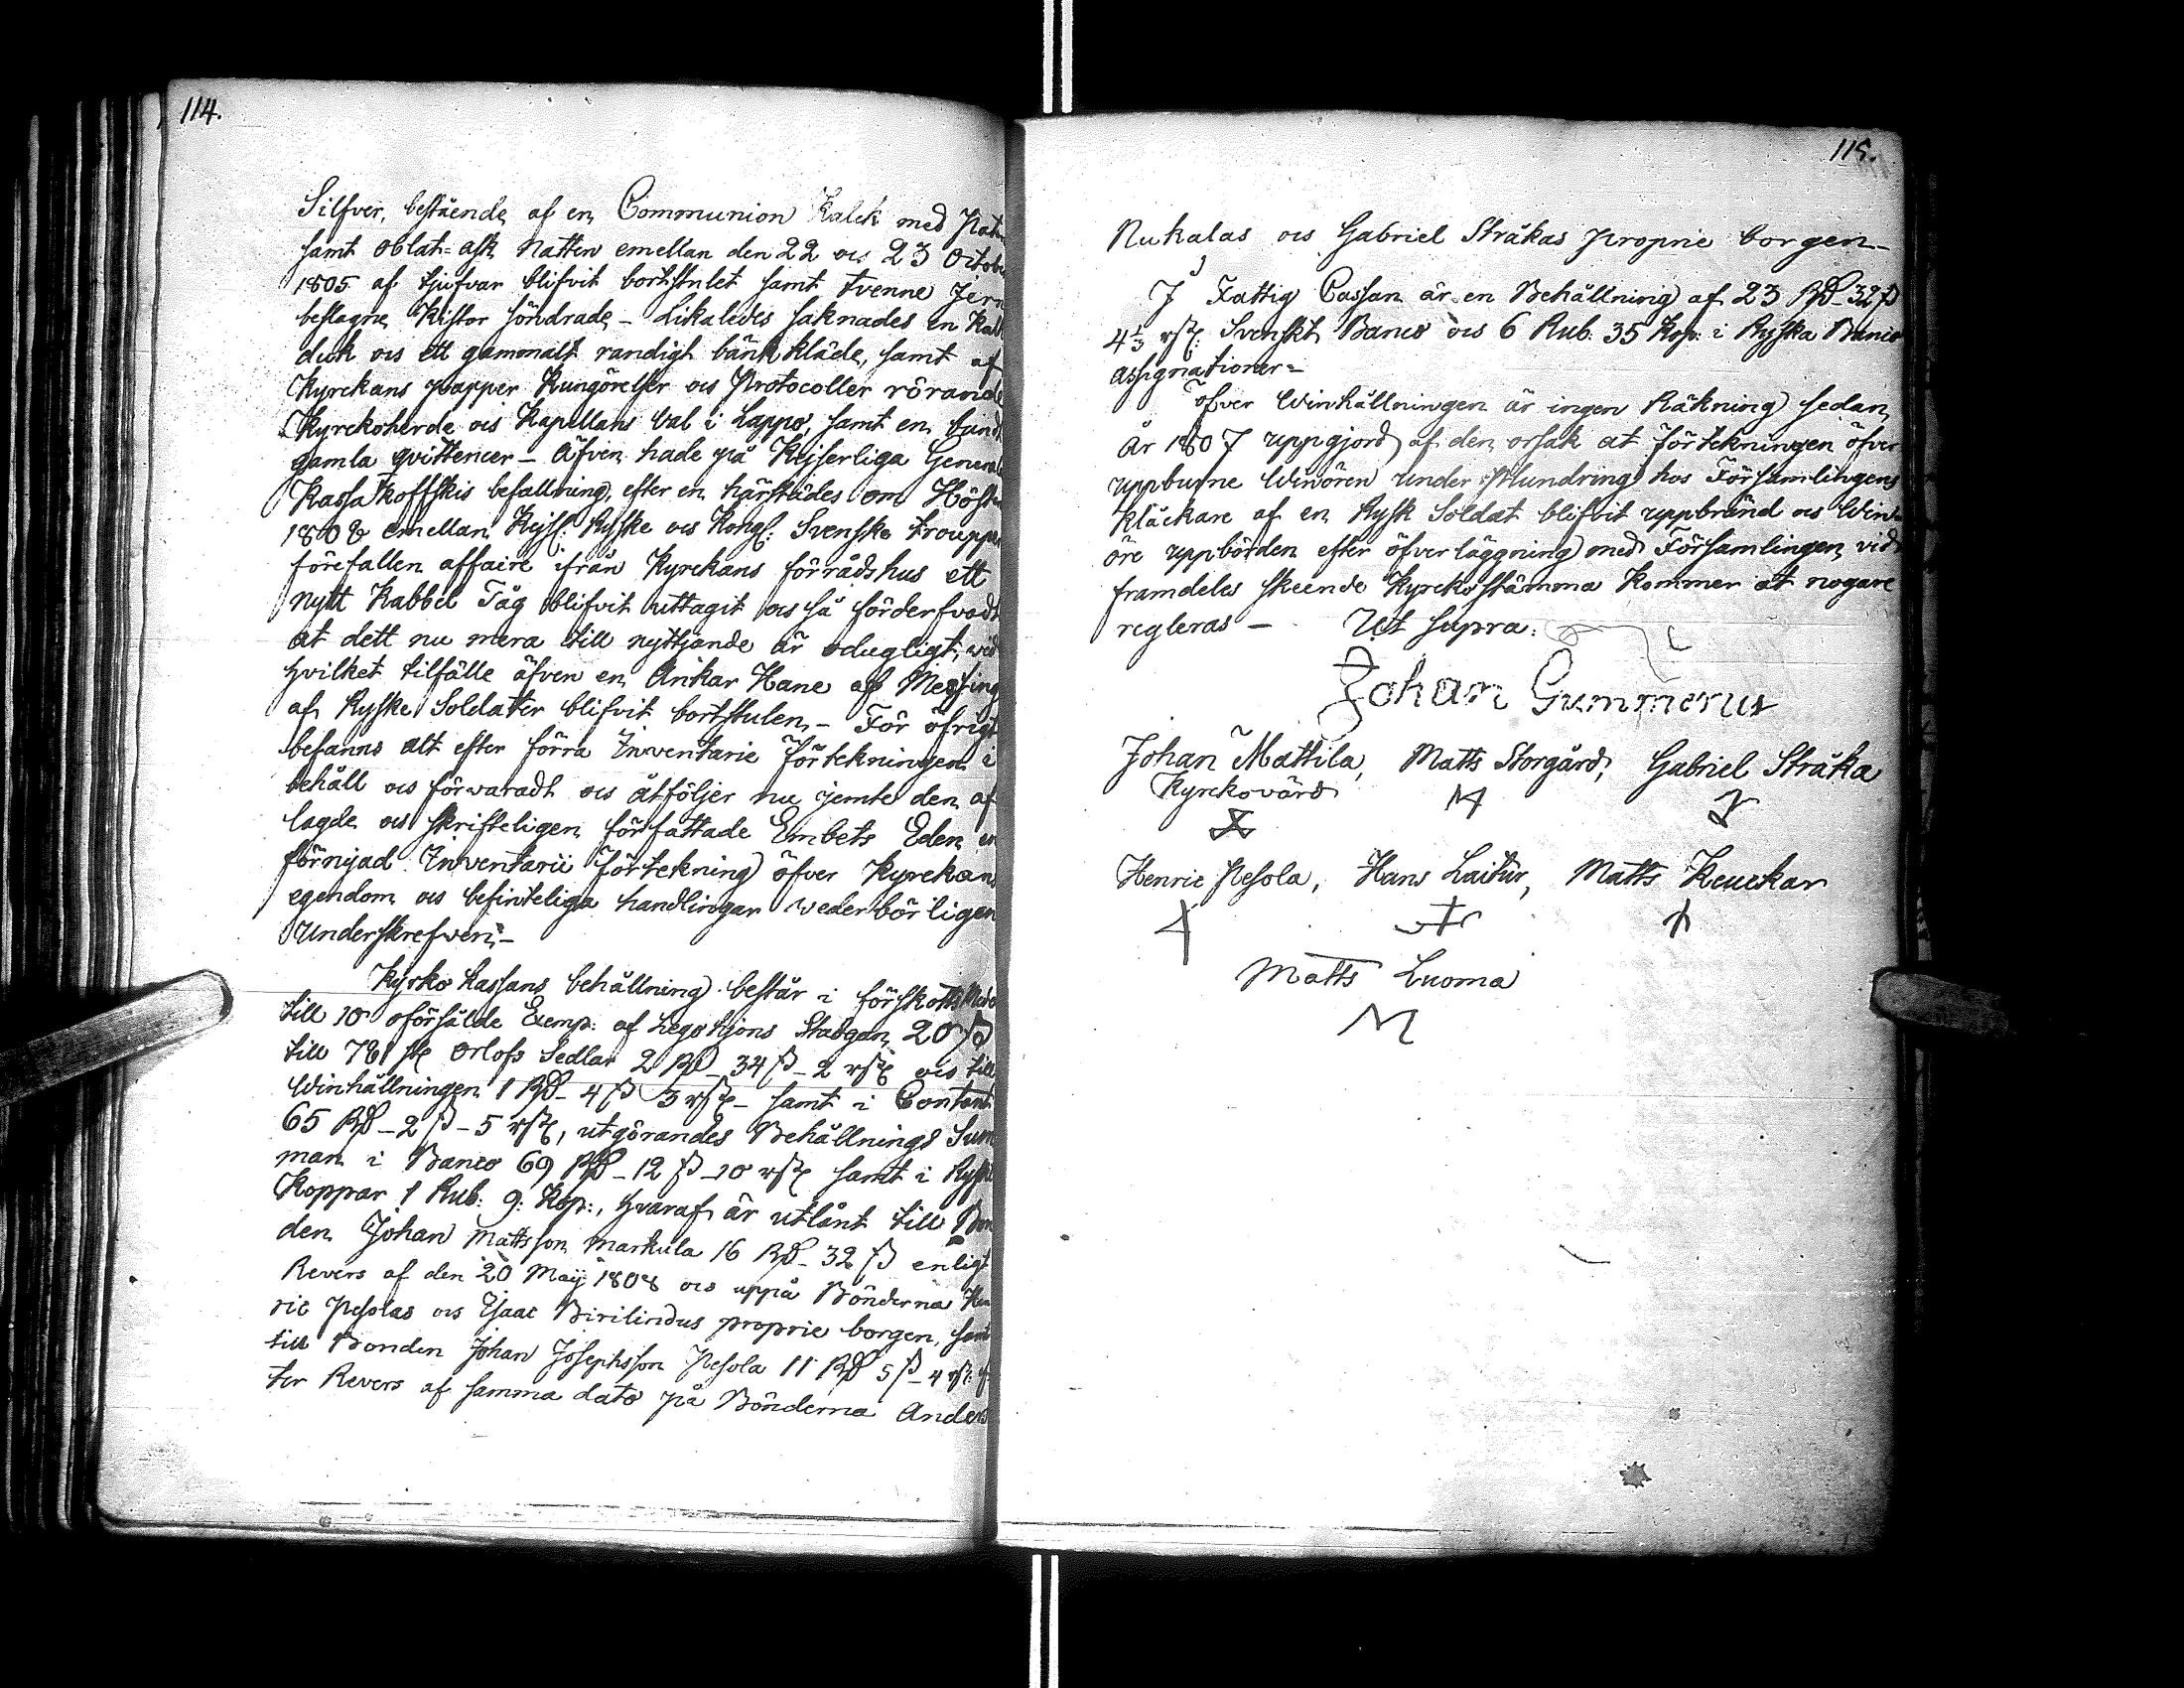 114.
Silfver, bestående af en Communion Kalck med Paten
samt Oblat=ask Natten emellan den 22 och 23 Octobr
1805 af tjufvar blifvit bortstulet samt tvenne Jern
beslagne Kistor söndrade – Likaledes saknades en Kalk
duk och ett gammalt randigt bänkkläde, samt af
Kyrckans papper Kungörelser och Protocoller rörande
Kyrckoherde och Kapellans val i Lappo, samt en bundt
gamla qvittencer – Äfven hade på Kejserliga General
Kassatkoffskis befallning, efter en härstädes om Hösten
1808 emellan Kejsl: Ryske och Kongl: Svenske trouppar
förefallen affaire ifrån Kyrckans förrådshus ett
nytt Kabbel Tåg blifvit uttagit och så förderfvadt
at dett nu mera till nyttjande är odugligt, wid
hvilket tilfälle äfven en Ankar Hane af Messing
af Ryske Soldater blifvit bortstulen – För öfrigt
befanns alt efter förra Inventarie Förtekningen i
behåll och förvaradt och åtföljer nu jemte den af
lagde och skrifteligen författade Embets Eden en
förnyad Inventarii Förtekning öfver Kyrckans
egendom och befinteliga handlingar wederbörligen
Underskrefven –
Kyrko Kassans behållning består i förskotts Medel
till 10 oförsålde Exemp: af Legohjons Stadgan 20 ß
till 781 st Orlofs Sedlar 2 RD – 34 ß – 2 rst och till
Winhållningen 1 RD – 4 ß 3 rst – samt i Contant
65 RD – 2 ß – 5 rst, utgörandes Behållnings Sum
man i Banco 69 RD – 12 ß – 10 rst samt i Ryska
Koppar 1 Rub: 9: Kop:, hvaraf är utlånt till Bon
den Johan Mattsson Markula 16 RD – 32 ß enligt
Revers af den 20 Maij 1808 och uppå Bönderna Hen
ric Pesolas och Isaac Birilindus proprie borgen, samt
till Bonden Johan Josephsson Pesola 11 RD 5 ß – 4 rst: ef
ter Revers af samma dato på Bönderna Anders
115.
Rukalas och Gabriel Stråkas proprie borgen –
I Fattig Cassan är en Behållning af 23 RD – 32 ß
4 1/3 rst: Svenskt Banco och 6 Rub: 35 Kop: i Ryska Banco
Assignationer =
Öfver Winhållningen är ingen Räkning sedan
år 1807 uppgjord af den orsak at Förtekningen öfver
uppburne Winören under Plundring hos Församlingens
Kläckare af en Rysk Soldat blifvit uppbränd och Win=
öre uppbörden efter öfverläggning med Församlingen vid
framdeles skeende Kyrckostämma Kommer at nogare
regleras – Ut supra:
Johan Gummerus
Johan Mattila, Matts Storgård, Gabriel Stråka
Kyrckovärd
Henric Pesola, Hans Laitur, Matts Keuckar
Matts Luoma